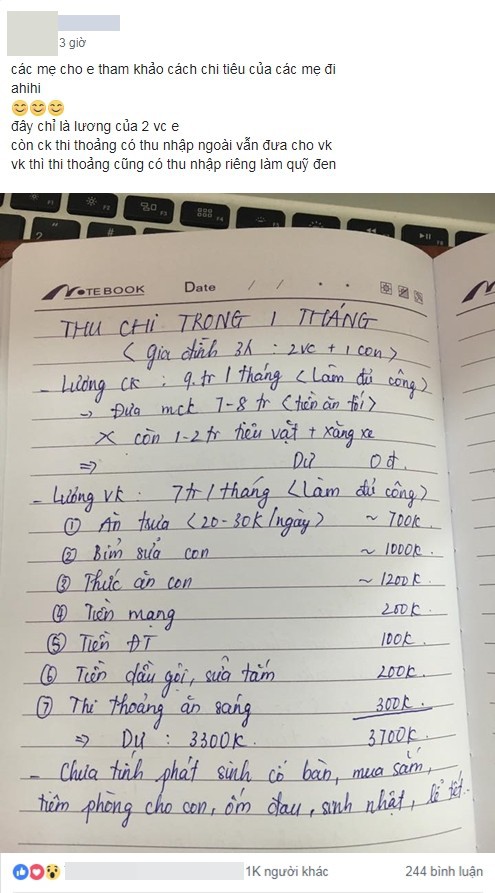 3 giờ
các mẹ cho e tham khảo cách chi tiêu của các mẹ đi
ahihi
😊😊😊
đây chỉ là lương của 2 vc e
còn ck thi thoảng có thu nhập ngoài vẫn đưa cho vk
vk thì thi thoảng cũng có thu nhập riêng làm quỹ đen
NOTEBOOK Date / /
THU CHI TRONG 1 THÁNG
< Gia đình 3k : 2vc + 1 con >
- Lương CK : 9tr / tháng < Làm đủ công >
-> Đưa mck 7-8 tr < tiền ăn tối >
X còn 1-2 tr tiêu vặt + xăng xe
=> Dư 0 đ.
- Lương VK : 7tr / tháng < Làm đủ công >
① Ăn trưa < 20-30k/ngày > ~ 700k.
② Bỉm sửa con ~ 1000k.
③ Thức ăn con ~ 1200k
④ Tiền mạng 200k.
⑤ Tiền ĐT 100k.
⑥ Tiền dầu gội, sửa tắm 200k.
⑦ Thi thoảng ăn sáng 300k.
=> Dư : 3300k. 3700k.
- Chưa tính phát sinh cỏ bàn, mua sắm,
tiêm phòng cho con, ốm đau, sinh nhật, lể tết.
1K người khác 244 bình luận